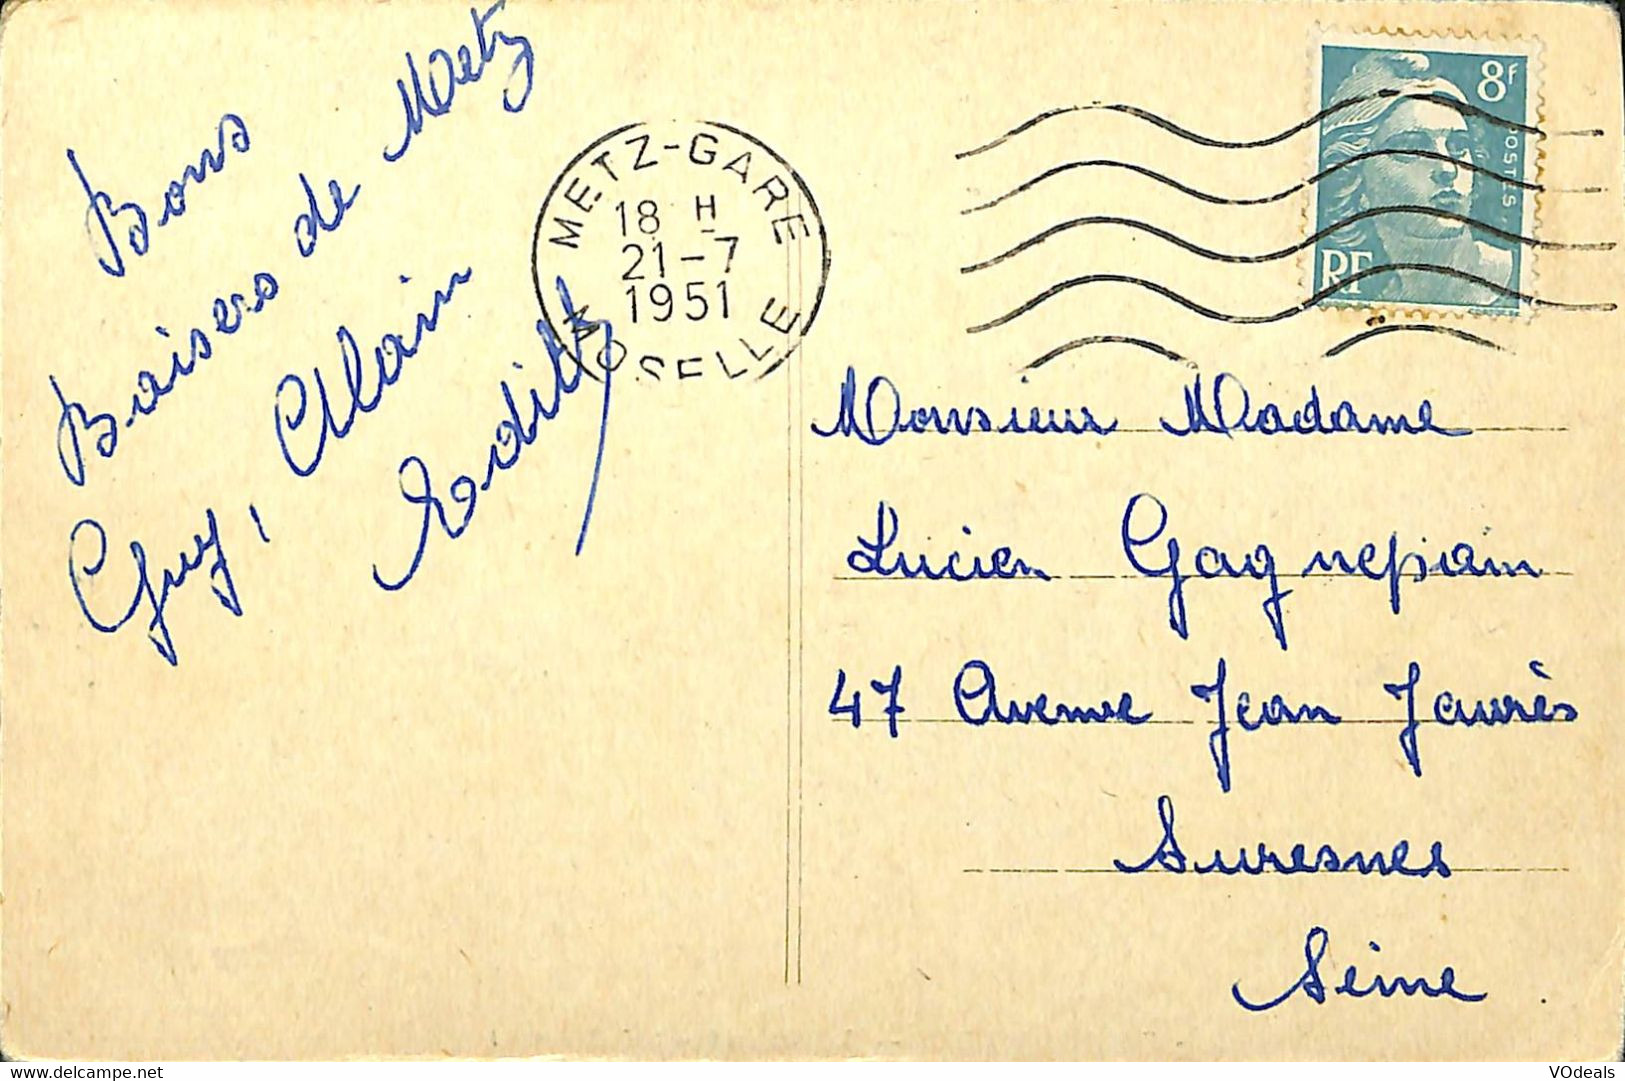 Bons
Baisers de Metz
Guy, Alain
Edith
METZ-GARE
18 H
21-7
1951
MOSELLE
8F
POSTES
RF
Monsieur Madame
Lucien Gagnepain
47 Avenue Jean Jaurès
Suresnes
Seine
delcampe.net
VOdeals